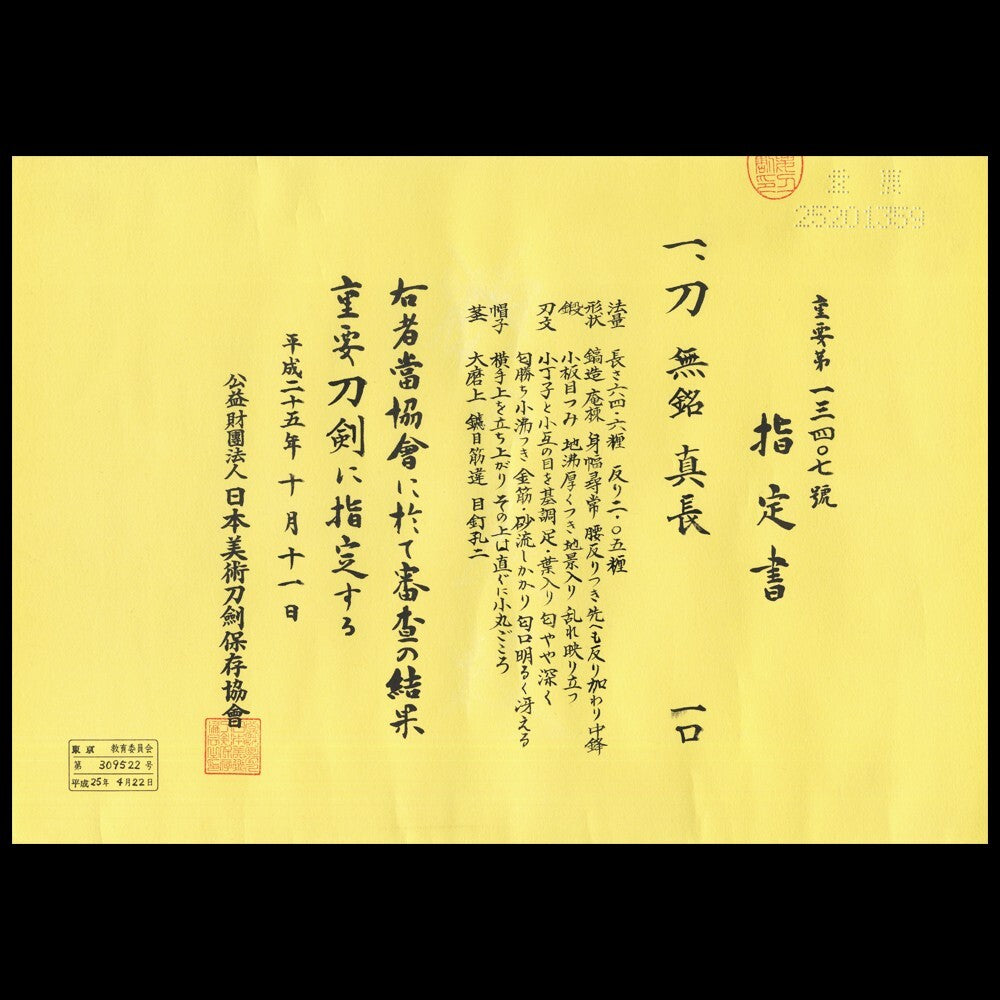 重票
25201359
重要第一三四〇七號
指定書
一、刀 無銘 真長 一口
法量 長さ六四・六糎 反り二・〇五糎
形状 鎬造 庵棟 身幅尋常 腰反りつき先へも反り加わり中鋒
鍛 小板目つみ 地沸厚くつき地景入り 乱れ映り立つ
刃文 小丁子と小互の目を基調 足・葉入り 匂やや深く
匂勝ち小沸つき 金筋・砂流しかかり 匂口明るく冴える
帽子 横手上を立ち上がり その上は直ぐに小丸ごころ
茎 大磨上 鑢目筋違 目釘孔二
右者當協會に於て審査の結果
重要刀剣に指定する
平成二十五年十月十一日
公益財團法人日本美術刀劍保存協會
東京 教育委員会
第 309522 号
平成25年 4月22日